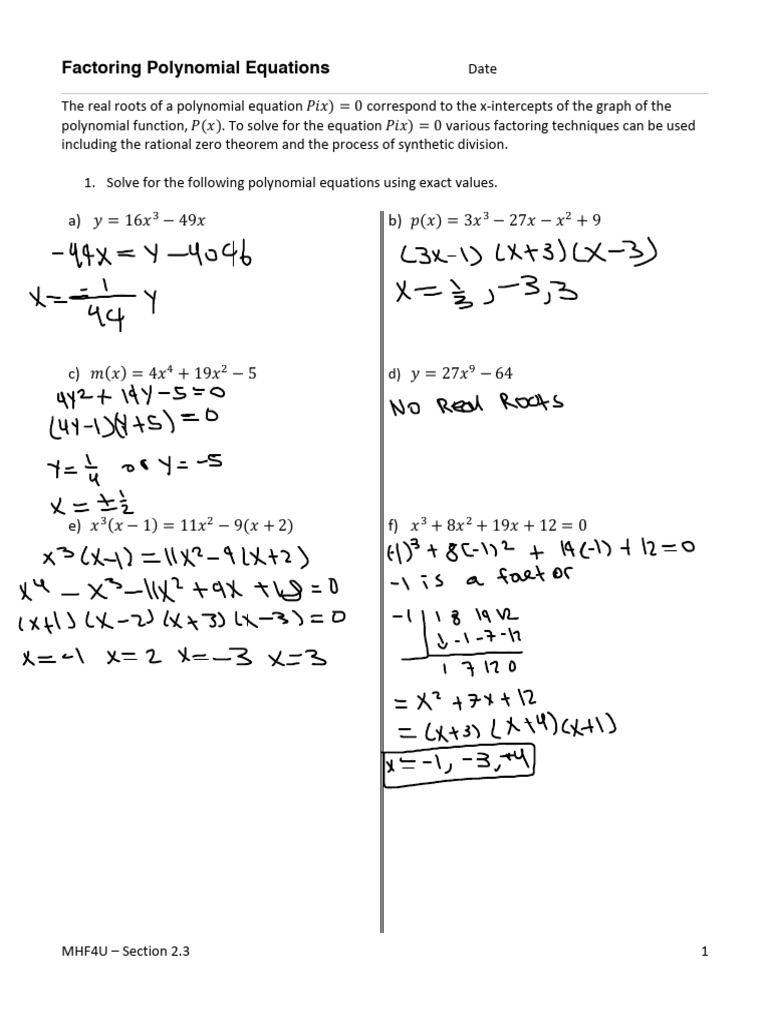 Factoring Polynomial Equations Date
The real roots of a polynomial equation 𝑃𝑖𝑥) = 0 correspond to the x-intercepts of the graph of the
polynomial function, 𝑃(𝑥). To solve for the equation 𝑃𝑖𝑥) = 0 various factoring techniques can be used
including the rational zero theorem and the process of synthetic division.
1. Solve for the following polynomial equations using exact values.
a) y = 16x³ − 49x
-49x = y - 4096
x = -1/94 y
b) p(x) = 3x³ − 27x − x² + 9
(3x-1) (x+3)(x-3)
x = 1/3, -3, 3
c) m(x) = 4x⁴ + 19x² − 5
4y² + 19y - 5 = 0
(4y-1)(y+5) = 0
y = 1/4 or y = -5
x = ± 1/2
d) y = 27x⁹ − 64
No Real Roots
e) x³(x − 1) = 11x² − 9(x + 2)
x³(x-1) = 11x² - 9(x+2)
x⁴ - x³ - 11x² + 9x + 18 = 0
(x+1) (x-2) (x+3) (x-3) = 0
x = -1 x = 2 x = -3 x = 3
f) x³ + 8x² + 19x + 12 = 0
(-1)³ + 8(-1)² + 19(-1) + 12 = 0
-1 is a factor
-1 | 1 8 19 12
↓ -1 -7 -12
1 7 12 0
= x² + 7x + 12
= (x+3) (x+4)(x+1)
x = -1, -3, +4
MHF4U – Section 2.3 1